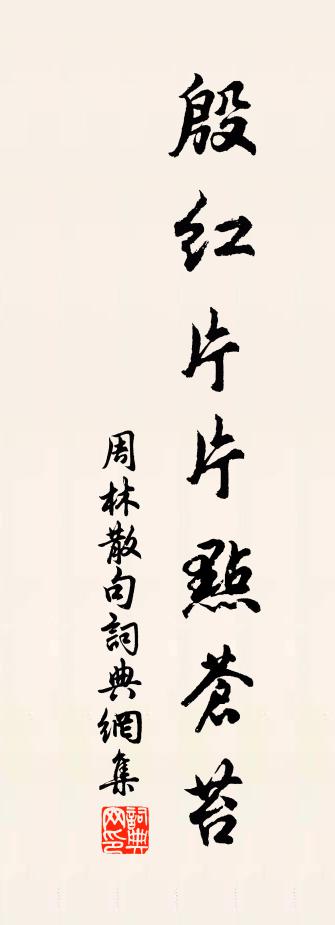 殷红片片點蒼苔
周林散句詞典網集
詞典网印